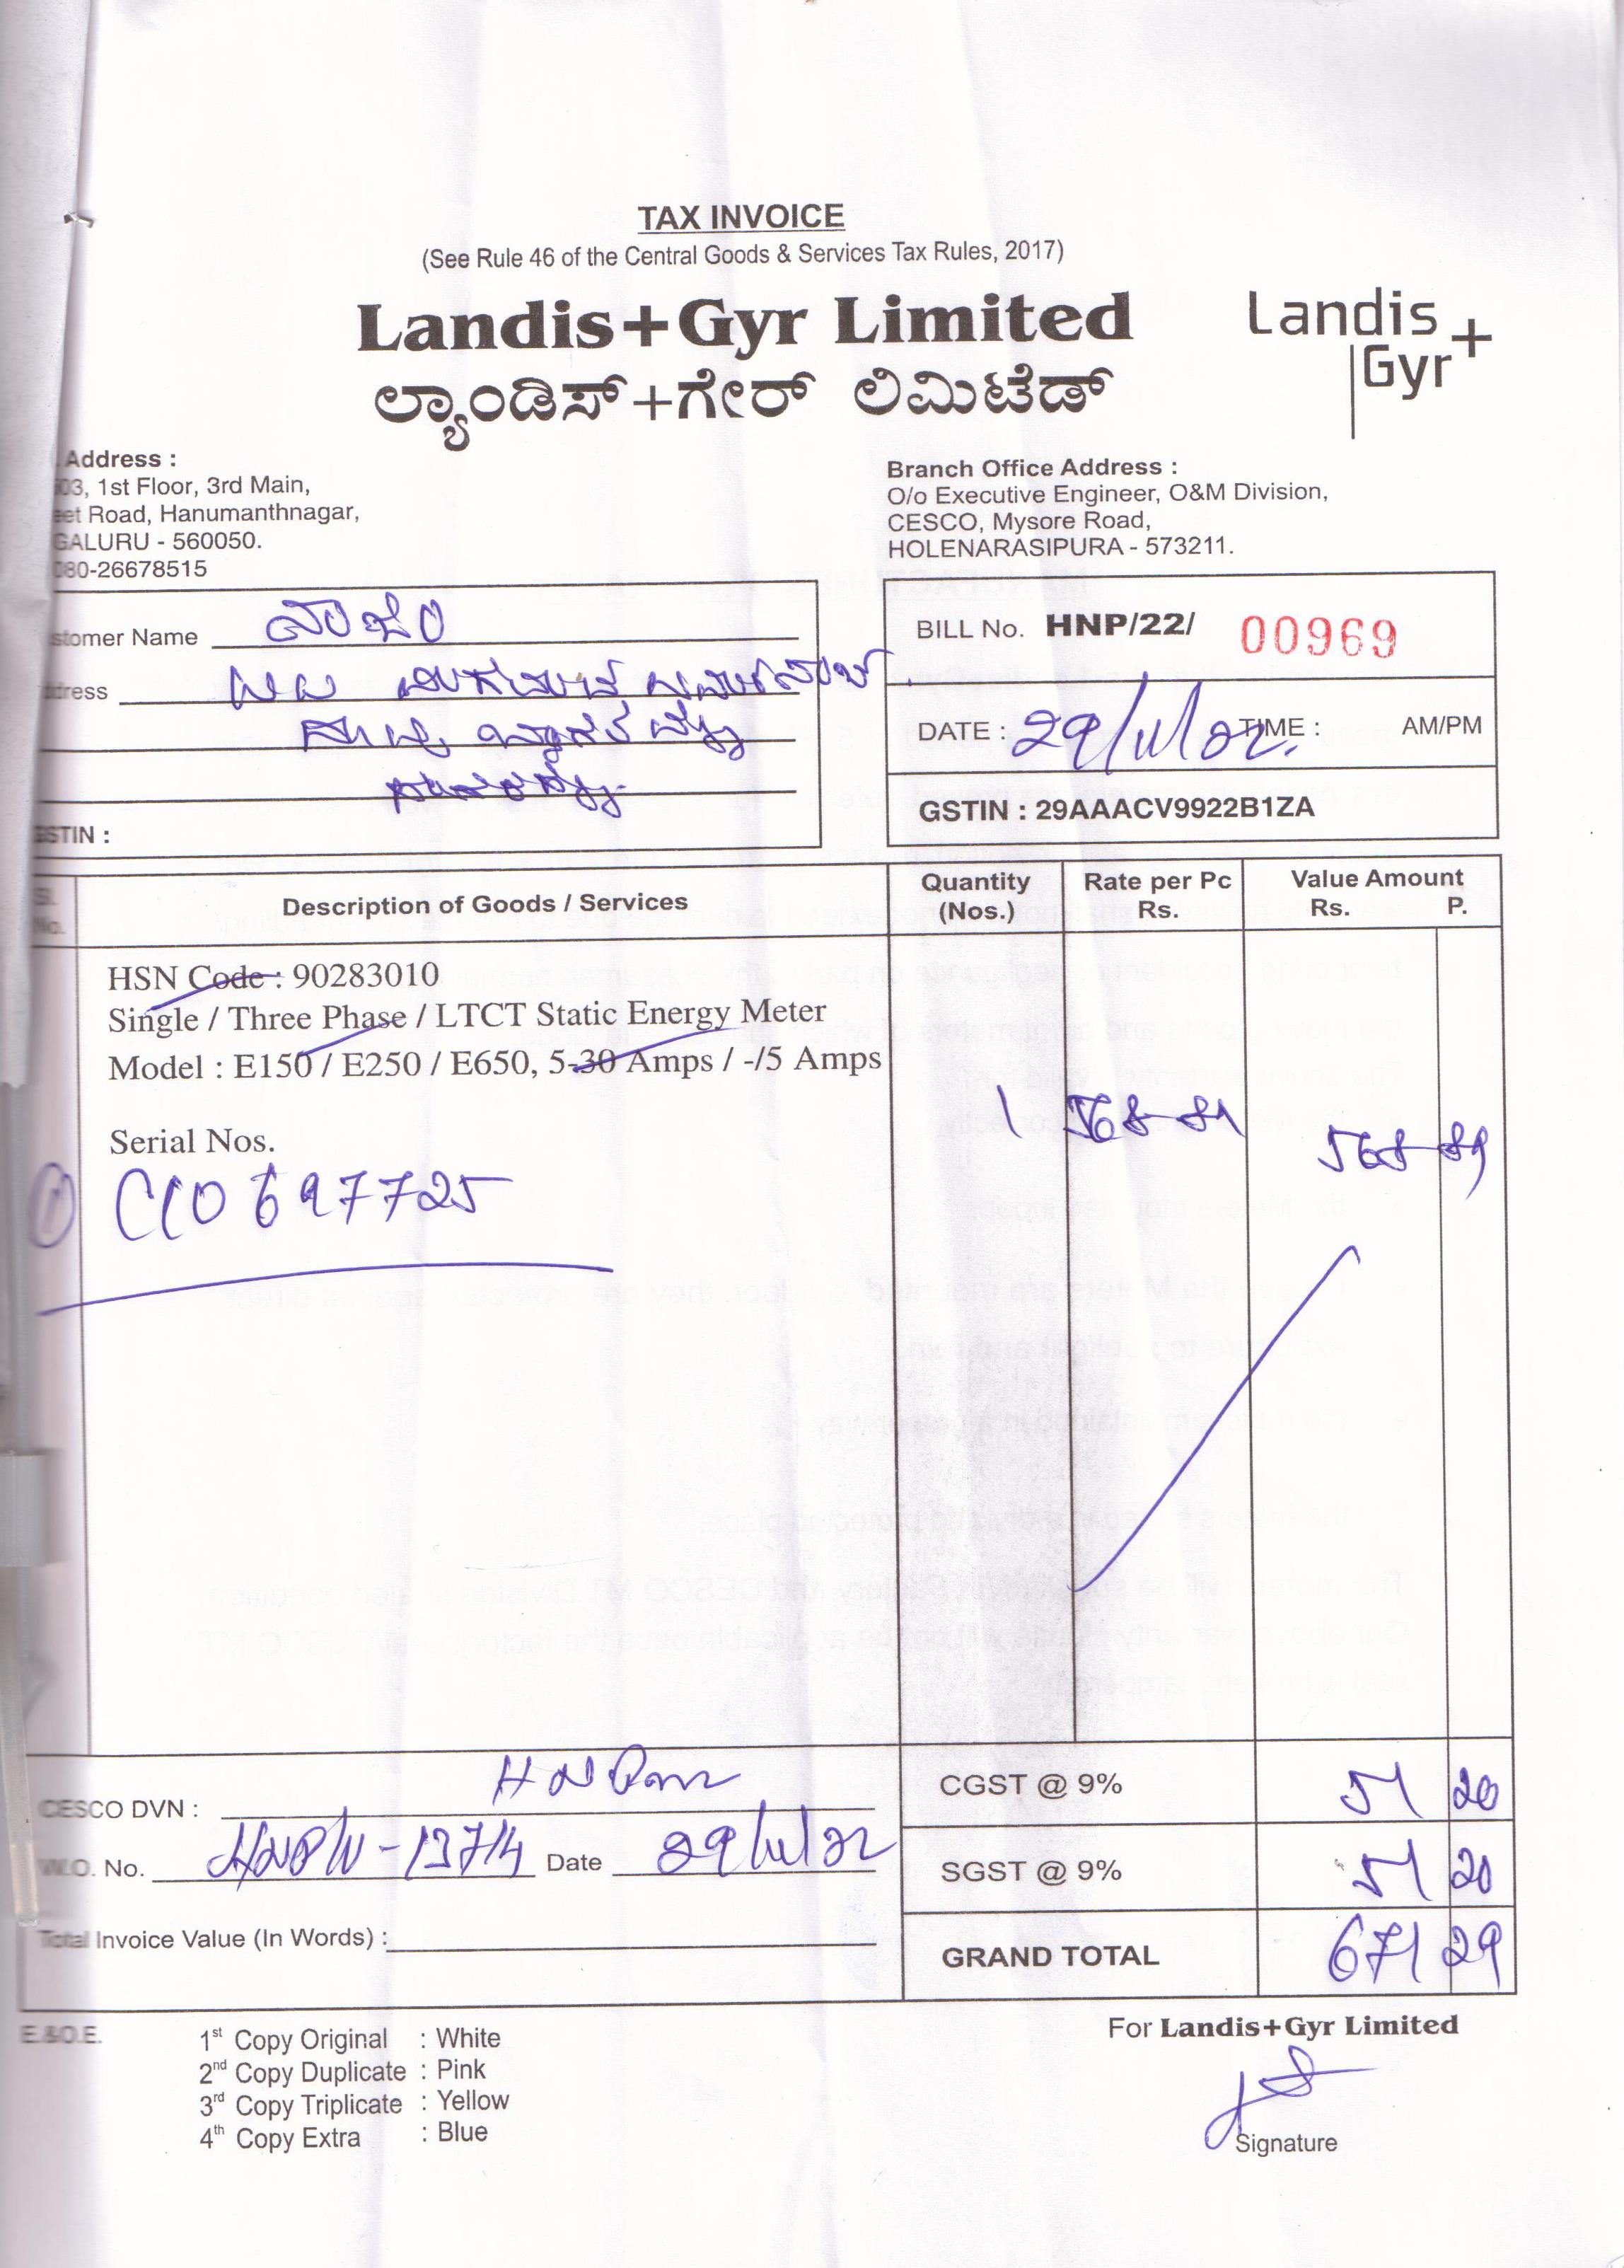 TAX INVOICE
(See Rule 46 of the Central Goods & Services Tax Rules, 2017)
Landis+Gyr Limited
ಲ್ಯಾಂಡಿಸ್+ಗೇರ್ ಲಿಮಿಟೆಡ್
Landis+
Gyr
Address :
03, 1st Floor, 3rd Main,
eet Road, Hanumanthnagar,
GALURU - 560050.
080-26678515
Branch Office Address :
O/o Executive Engineer, O&M Division,
CESCO, Mysore Road,
HOLENARASIPURA - 573211.
stomer Name
dress
GSTIN :
BILL No. HNP/22/ 00969
DATE : 29/11/22. TIME : AM/PM
GSTIN : 29AAACV9922B1ZA
Sl. No. Description of Goods / Services Quantity (Nos.) Rate per Pc Rs. Value Amount Rs. P.
HSN Code : 90283010
Single / Three Phase / LTCT Static Energy Meter
Model : E150 / E250 / E650, 5-30 Amps / -/5 Amps
1 568-89 568-89
Serial Nos.
1) C10697725
CESCO DVN :
CGST @ 9% 51 20
W.O. No. Date 29/11/22
SGST @ 9% 51 20
Total Invoice Value (In Words) :
GRAND TOTAL 671 29
E.&O.E.
1st Copy Original : White
2nd Copy Duplicate : Pink
3rd Copy Triplicate : Yellow
4th Copy Extra : Blue
For Landis+Gyr Limited
Signature